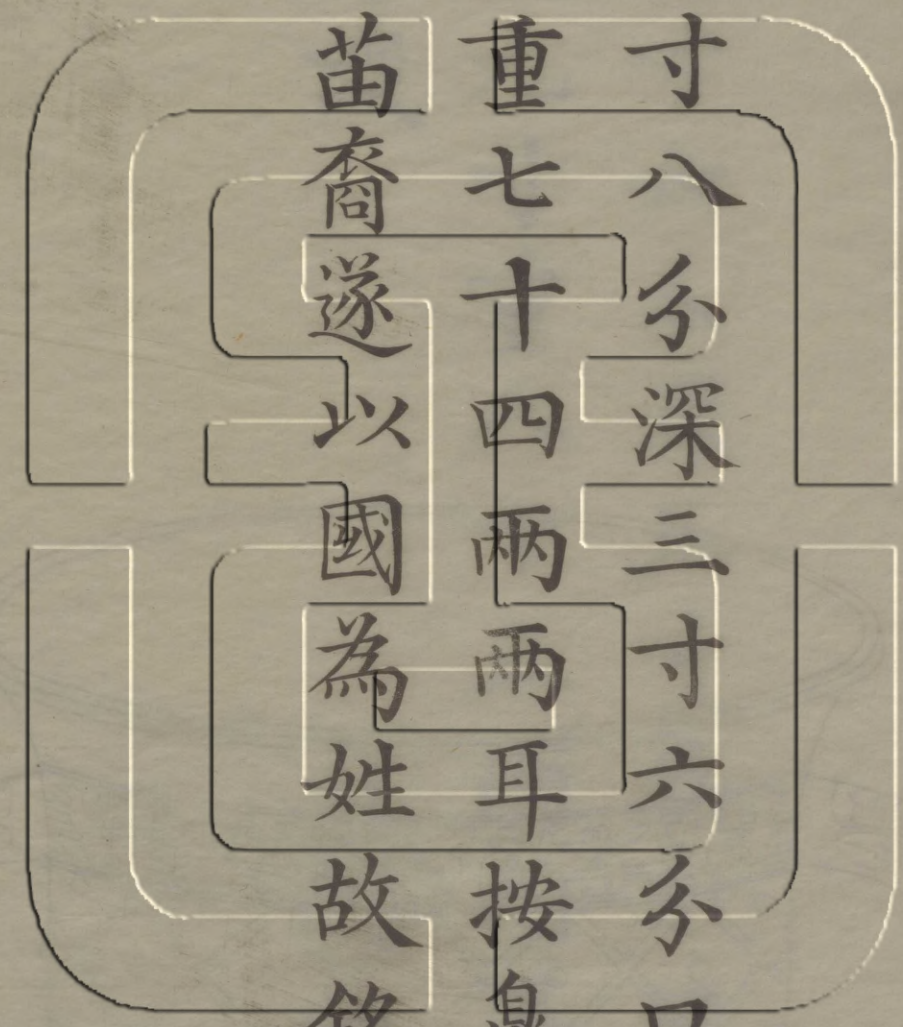 寸八分深三寸六分口
重七十四兩兩耳按
苗裔遂以國為姓故銘